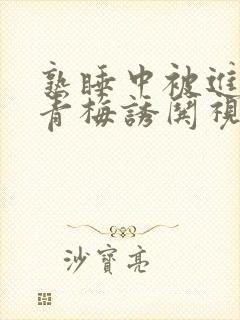 熟睡中被進
青梅誘関視
沙寶亮